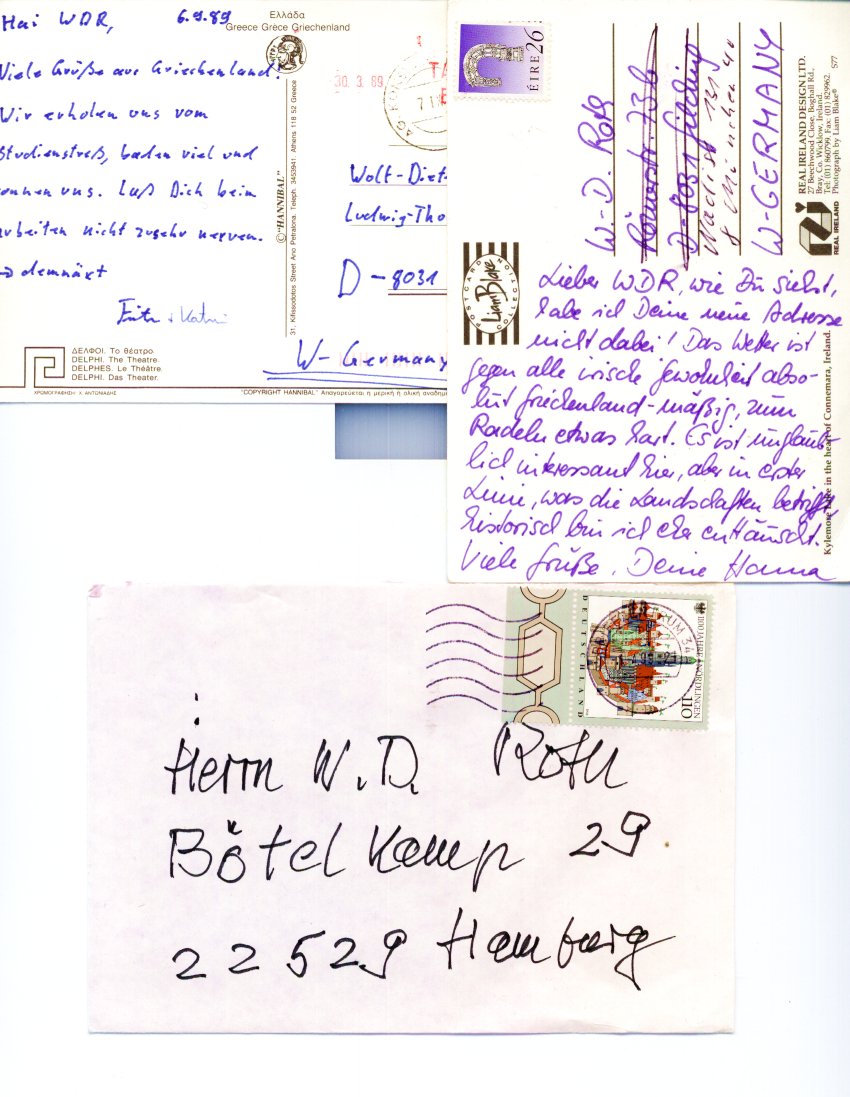 Hai WDR, 6.9.89
Viele Grüße aus Griechenland!
Wir erholen uns vom
Studienstreß, baden viel und
sonnen uns. Laß Dich beim
arbeiten nicht zusehr nerven.
demnäxt
Ελλάδα
Greece Grèce Griechenland
©"HANNIBAL"
31, Kifissodotos Street Ano Petralona. Telegh. 3453941. Athens 118 52 Greece
Wolf-Diet
Ludwig-Tho
D-8031
W-Germany
ΔΕΛΦΟΙ. Το θέατρο.
DELPHI. The Theatre.
DELPHES. Le Théâtre.
DELPHI. Das Theater.
ΧΡΩΜΟΓΡΑΦΗΣΗ: Χ. ΑΝΤΩΝΙΑΔΗΣ
"COPYRIGHT HANNIBAL" Απαγορεύεται η μερική ή ολική αναδημ
ÉIRE 26
W.-D. Roth
Römerstr. 73b
8 München 40
W-GERMANY
REAL IRELAND DESIGN LTD.
27 Beechwood Close, Boghall Rd.,
Bray, Co. Wicklow, Ireland.
Tel: (01) 860799. Fax: (01) 829962.
Photograph by Liam Blake® S77
REAL IRELAND
POSTCARD COLLECTION
Liam Blake
Lieber WDR, wie Du siehst,
habe ich Deine neue Adresse
nicht dabei! Das Wetter ist
gegen alle irische Gewohnheit abso-
lut Griechenland-mäßig, zum
Radeln etwas hart. Es ist unglaub-
lich interessant hier, aber in erster
Linie, was die Landschaften betrifft,
historisch bin ich eher enttäuscht.
Viele Grüße, Deine Hanna
Kylemore Lake in the heart of Connemara, Ireland.
DEUTSCHLAND
1100 JAHRE NÖRDLINGEN
110
Herrn W. D. Roth
Bötelkamp 29
22529 Hamburg